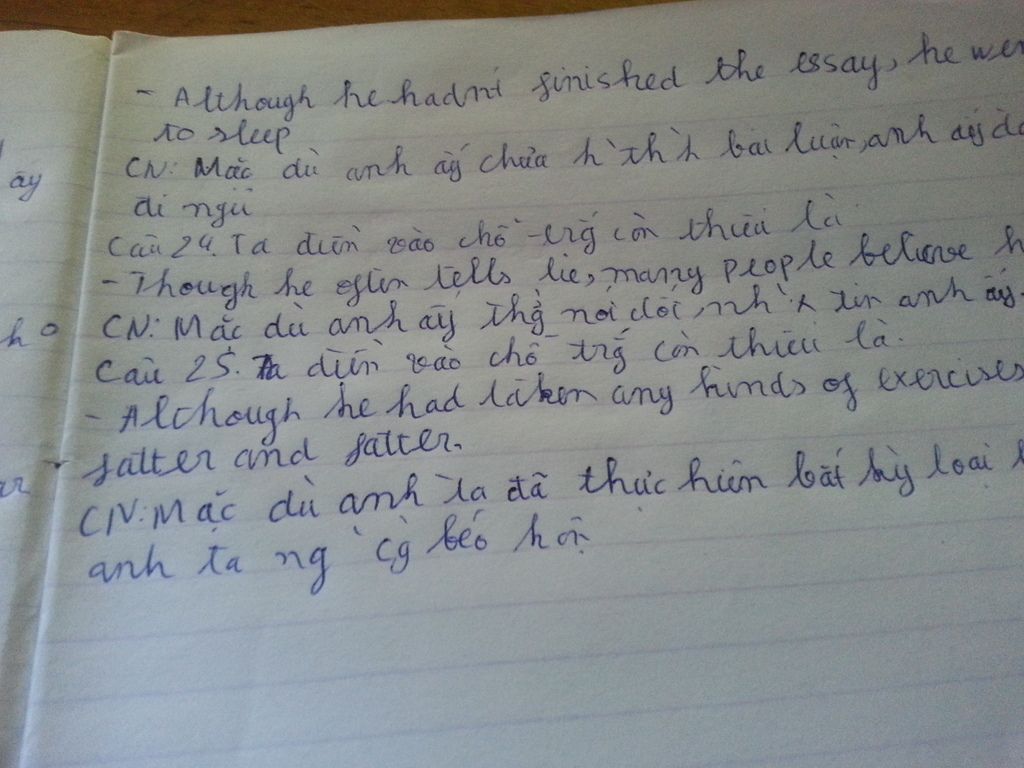 - Although he hadn't finished the essay, he wen
to sleep
ấy
CN: Mặc dù anh ấy chưa h`th`h bài luận, anh ấy đã
đi ngủ
Câu 24. Ta điền vào chỗ trg còn thiếu là
- Though he often tells lie, many people believe h
ho
CN: Mặc dù anh ấy thg nói dối, nh` tin anh ấy.
Câu 25. Ta điền vào chỗ trg còn thiếu là.
- Although he had taken any kinds of exercises
fatter and fatter.
CN: Mặc dù anh ta đã thực hiện bất kỳ loại
anh ta ng` cg béo hơn